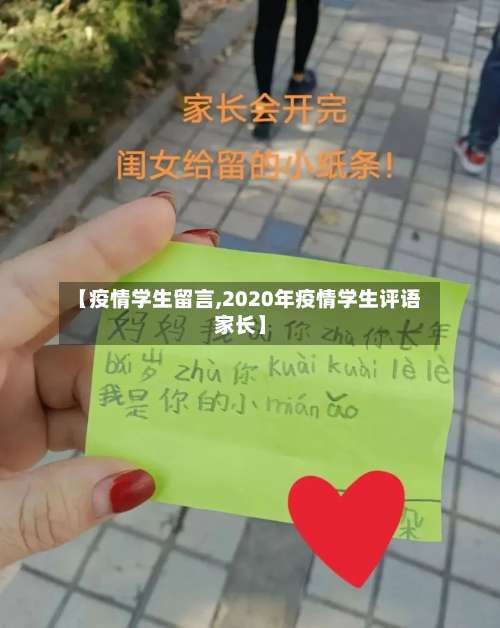 家长会开完
闺女给留的小纸条！
【疫情学生留言,2020年疫情学生评语
家长】
妈妈我 你zhù你长年
bǎi岁zhù你kuài kuài lè lè
我是你的小mián ǎo
朵